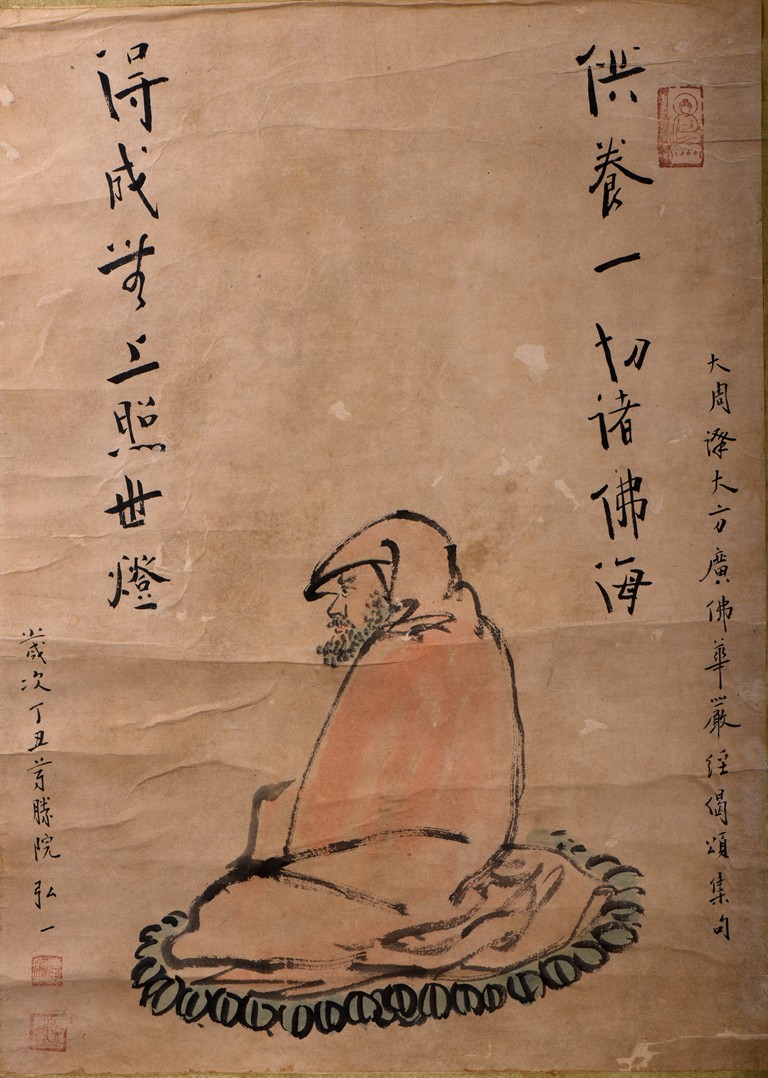 大周譯大方廣佛華嚴經偈頌集句
供養一切諸佛海
得成無上照世燈
歲次丁丑尊勝院弘一